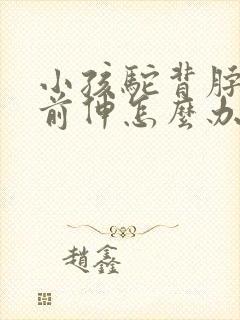 小孩駝背脖
前伸怎麼办
趙鑫